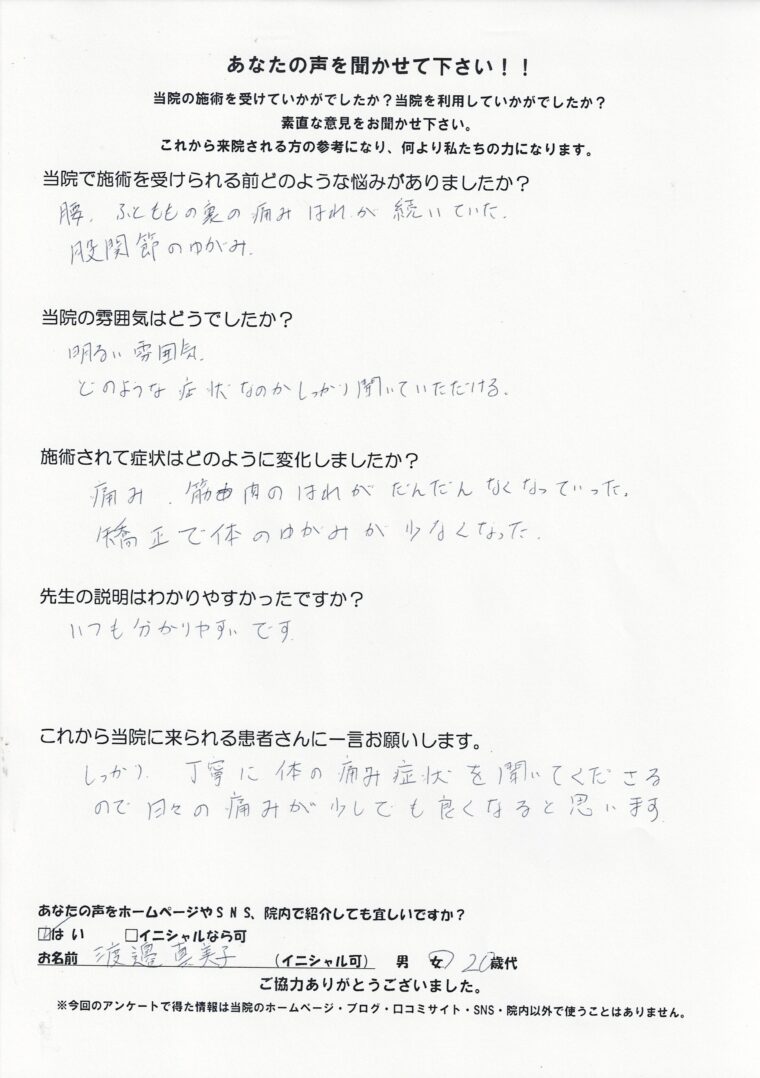 あなたの声を聞かせて下さい！！
当院の施術を受けていかがでしたか？当院を利用していかがでしたか？
素直な意見をお聞かせ下さい。
これから来院される方の参考になり、何より私たちの力になります。
当院で施術を受けられる前どのような悩みがありましたか？
腰、ふとももの裏の痛み はれが 続いていた。
股関節のゆがみ。
当院の雰囲気はどうでしたか？
明るい雰囲気。
どのような症状なのかしっかり聞いていただける。
施術されて症状はどのように変化しましたか？
痛み、筋肉のはれがだんだんなくなっていった。
矯正で体のゆがみが少なくなった。
先生の説明はわかりやすかったですか？
いつも分かりやすいです。
これから当院に来られる患者さんに一言お願いします。
しっかり、丁寧に体の痛み症状を聞いてくださる
ので日々の痛みが少しでも良くなると思います。
あなたの声をホームページやＳＮＳ、院内で紹介しても宜しいですか？
☑はい □イニシャルなら可
お名前 渡邉真美子 （イニシャル可） 男 女 20歳代
ご協力ありがとうございました。
※今回のアンケートで得た情報は当院のホームページ・ブログ・口コミサイト・SNS・院内以外で使うことはありません。